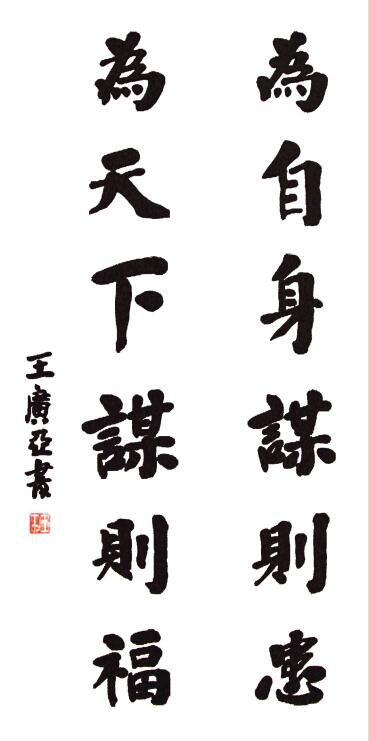 為自身謀則患
為天下謀則福
王廣亞書